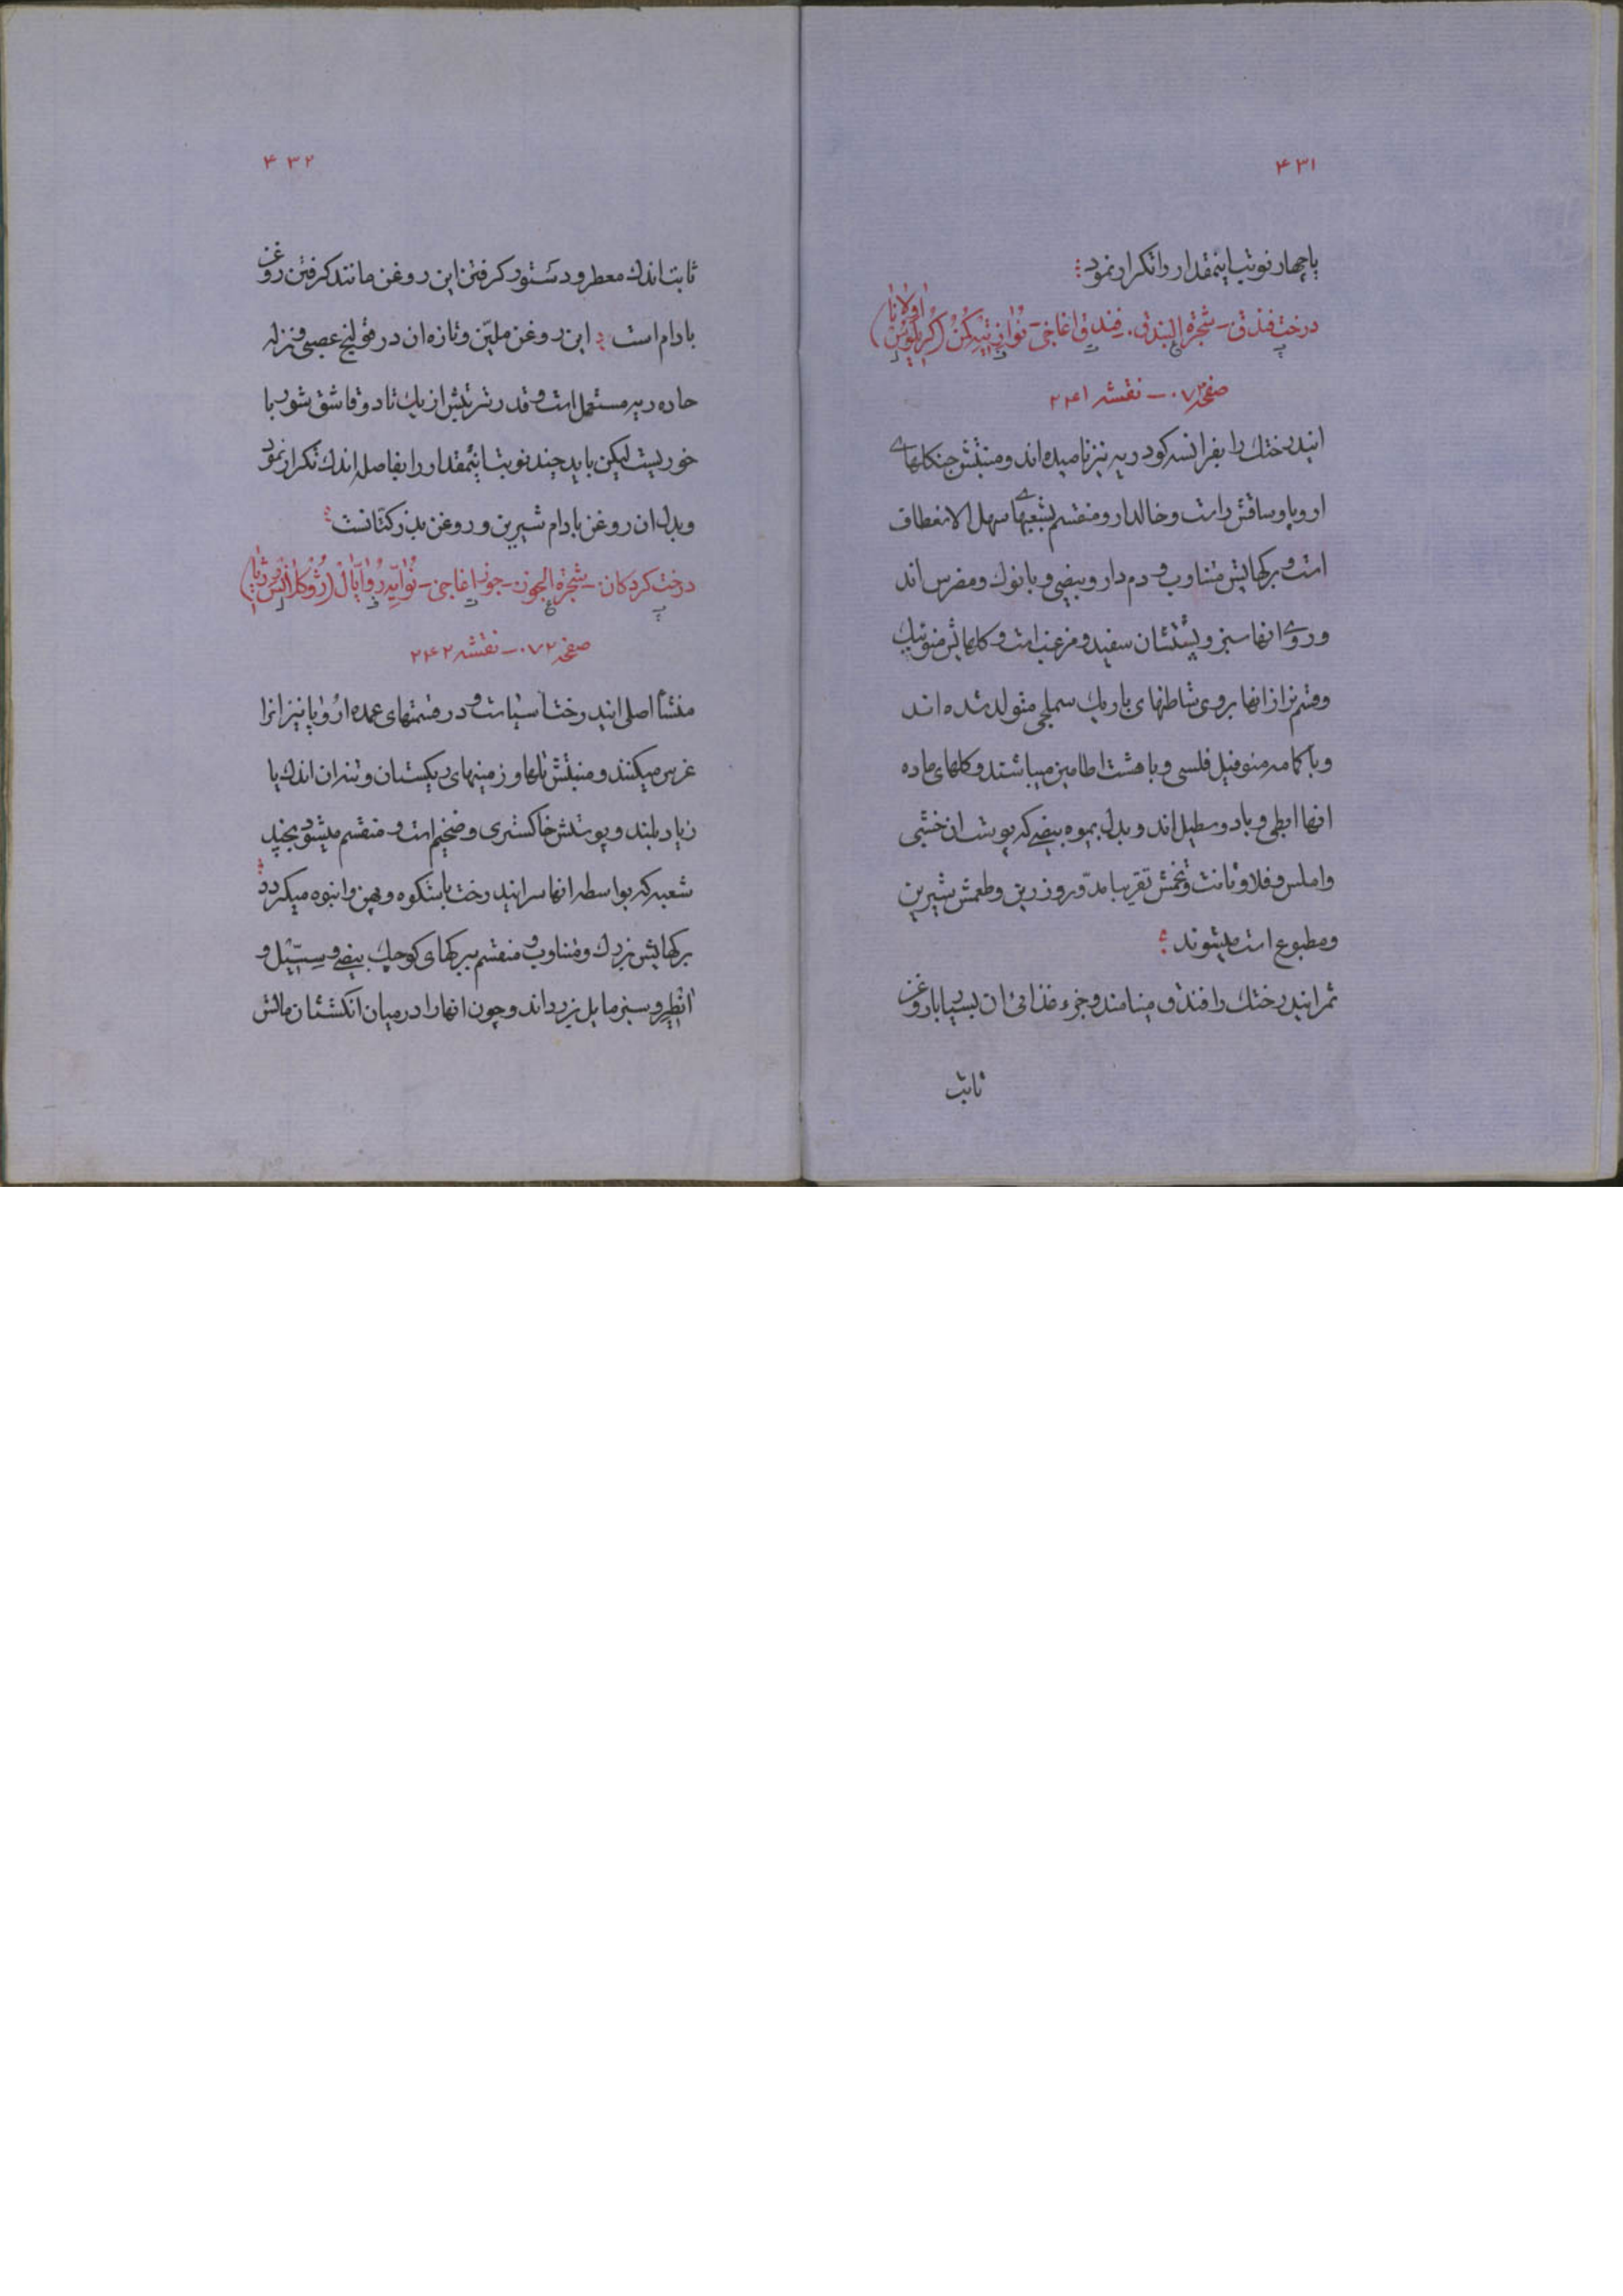 ۴۳۱
یا چهار نوبت اینمقدار را تکرار نمود
درخت فندق - شجرة البندق - فندق اغاجی -
صفحه ۰۷۲ - نقشه ۲۴۱
ایندرختك را بفرانسه کودریه نیز نامیده‌اند ومنبتش جنکلهای
اروپا وساقش راست وخالدار ومنقسم بشعبهای سهل الانعطاف
است وبرکهایش متناوب و دم دار وبیضی وبا نوك ومضرس اند
وروی انها سبز وپشتشان سفید ومزغب است وکلهایش منوئیك
وقسم نر از انها بروی شاطنهای باریك سملجی متولد شده اند
وبا کامه منوفیل فلسی وبا هشت اطامین میباشند وکلهای ماده
انها ابطی وبا دو سطیل اند وبدل بمیوه بیضی که پوست ان خشبی
واملس وفلاونانت وتخمش تقریبا مدور وزرین وطعمش شیرین
ومطبوع است میشوند
ثمر ایندرختك را فندق مینامند وجزء غذائی ان بسیار با روغن
ثابت
۴۳۲
ثابت اندك معطر ودستور کرفتن این روغن مانند کرفتن روغن
بادام است این روغن ملیّن وتازه ان در قولنج عصبی ونزله
حاده ریه مستعمل است وقدر شربتش از یك تا دو قاشق شوربا
خوریست لیکن باید چند نوبت اینمقدار را بفاصله اندك تکرار نمود
وبدل ان روغن بادام شیرین وروغن بذر کتانست
درخت کردکان - شجرة الجوز - جوز اغاجی - نوایه روایال
صفحه ۰۷۲ - نقشه ۲۴۲
منشأ اصلی ایندرخت آسیاست ودر قسمتهای عمده اروپا نیز انرا
غرس میکنند ومنبتش باغها وزمینهای ریکستان وتنه ان اندك یا
زیاد بلند وپوستش خاکستری وضخیم است ومنقسم میشود بچند
شعبه که بواسطه انها سر ایندرخت با شکوه وپهن وانبوه میکردد
برکهایش بزرك ومتناوب ومنقسم ببرکهای کوچك بیضی وسسیل و
انطیر وسبز مایل بزرد اند وچون انها را در میان انکشتان مالش